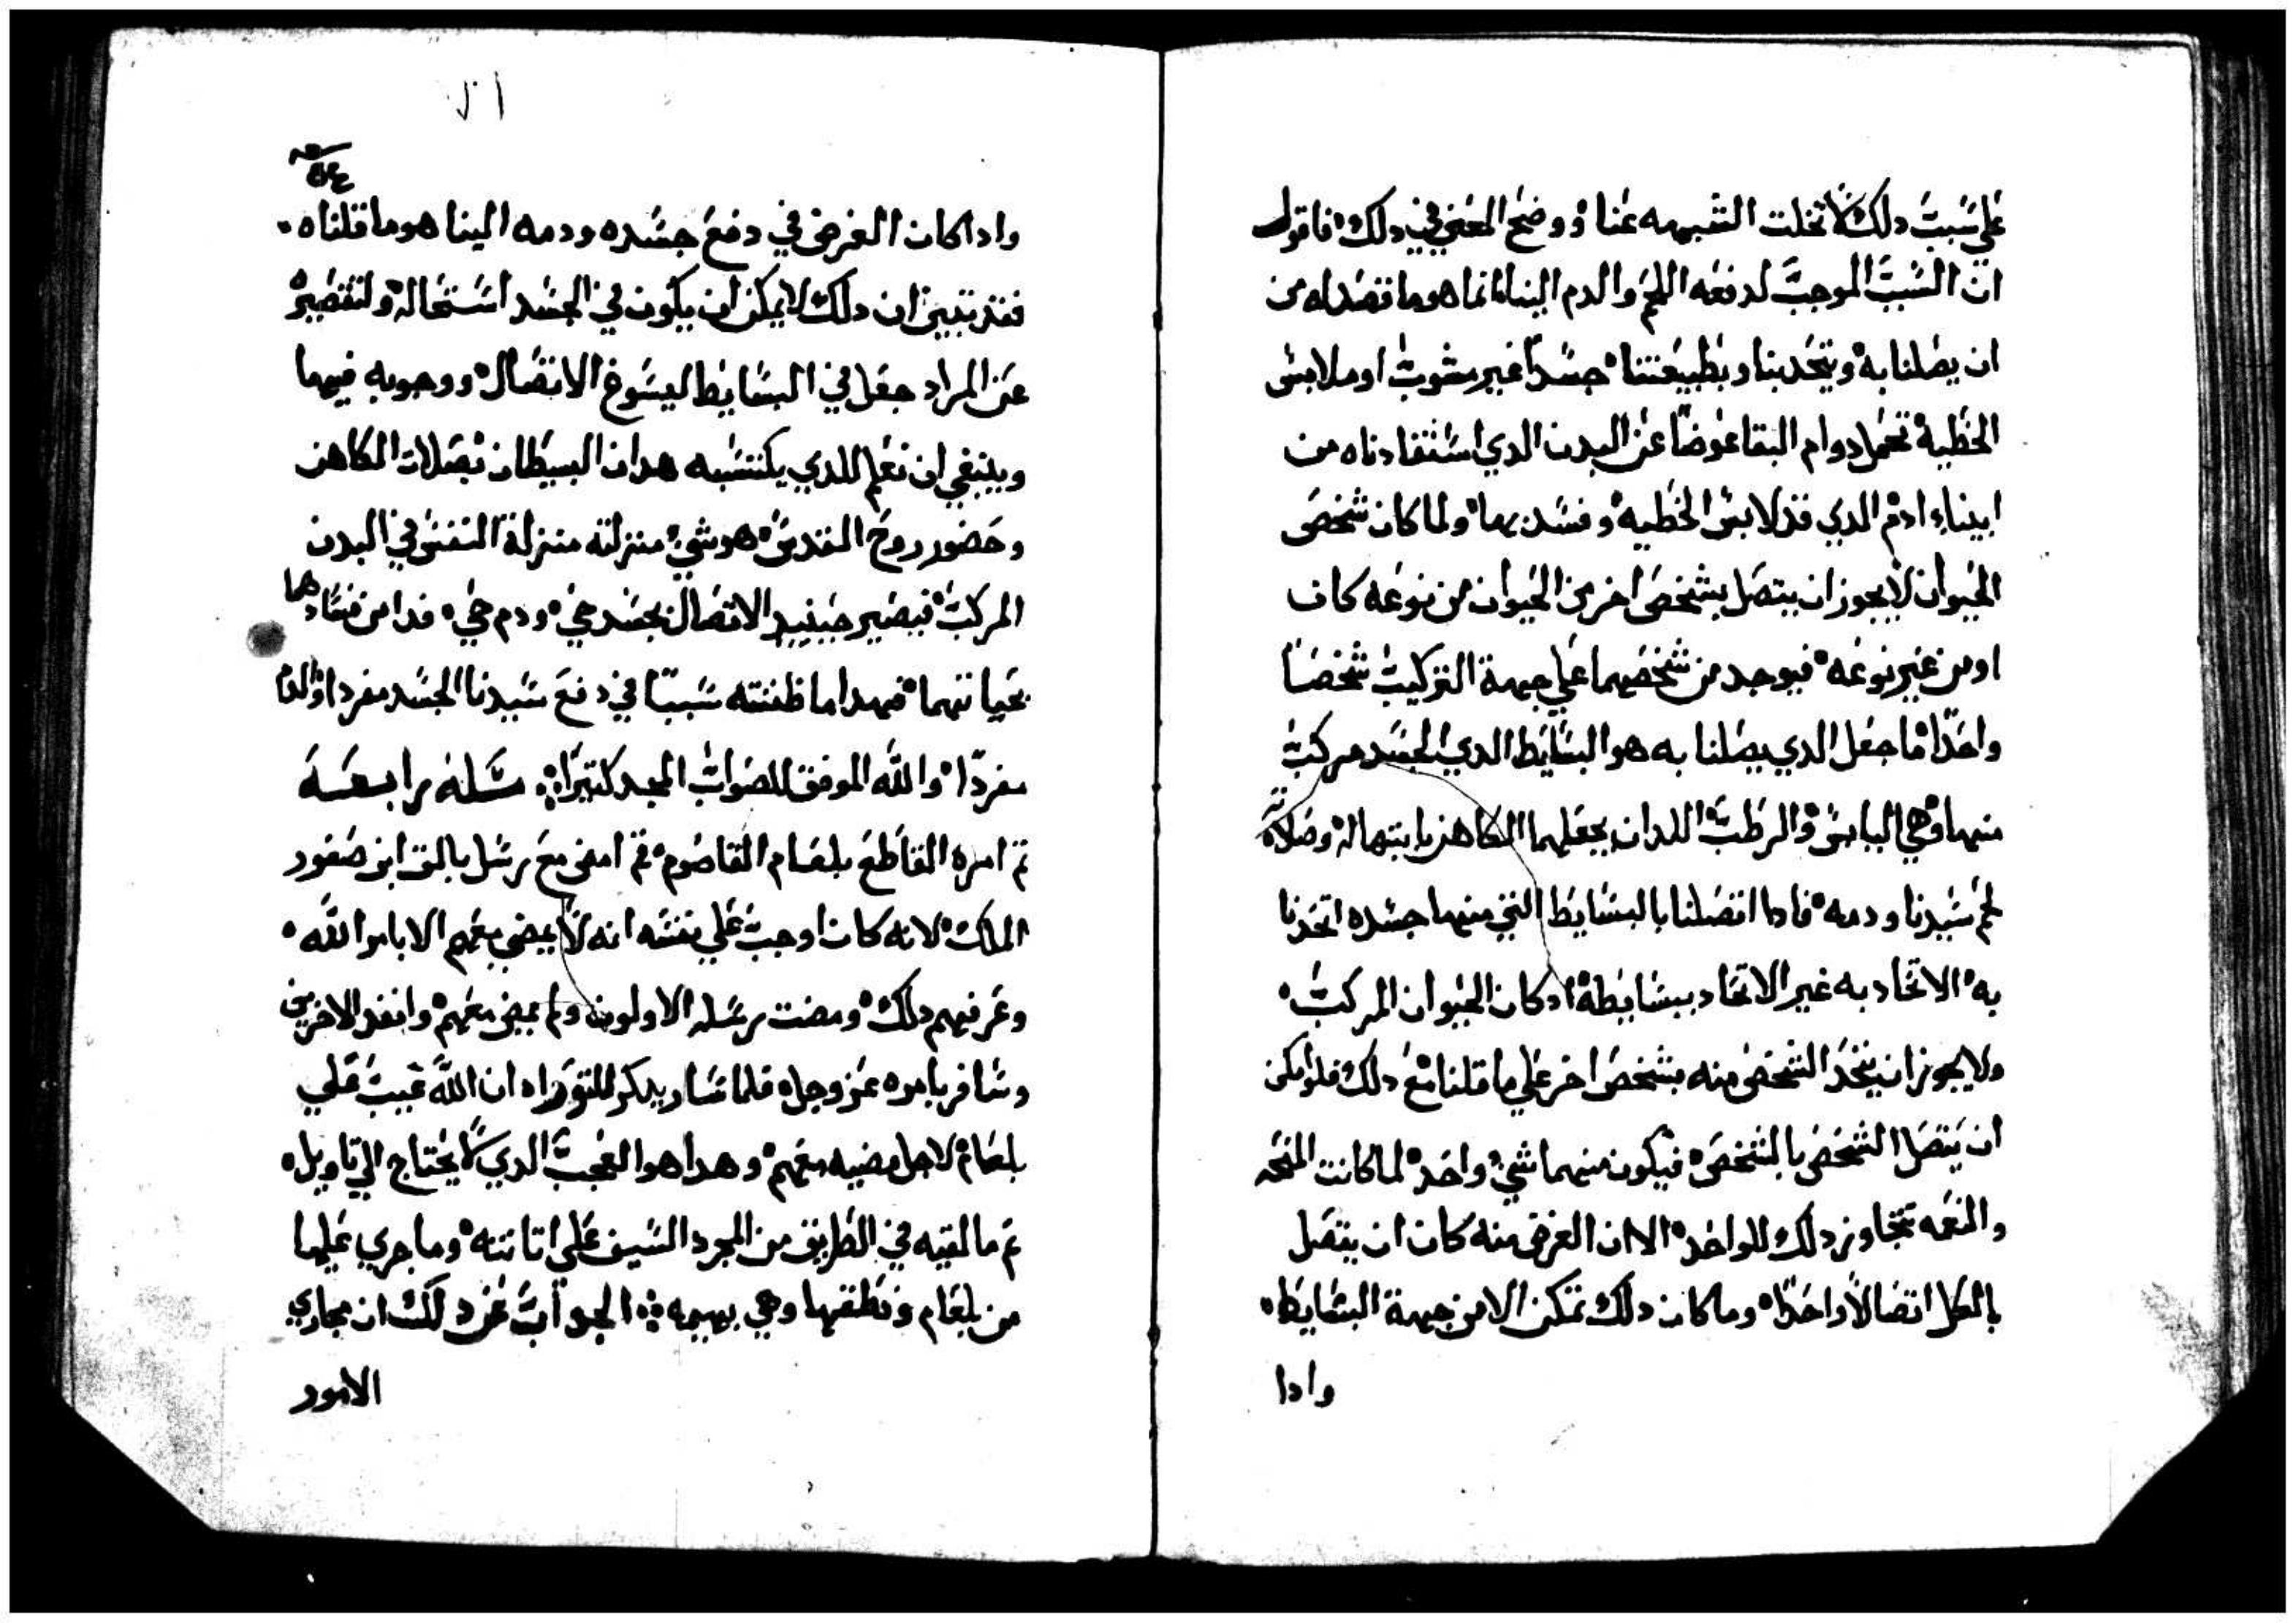 علي سبب دلك لانخلت الشبهه عنا ووضح المعني في دلك فاقول
ان السبب الموجب لدفعه اللحم والدم الينا انما هو ما قصداه من
ان يصلنا به ويتحد بنا وبطبيعتنا جسداً غير مشوب او ملابس
الخطية تحمل دوام البقا عوضاً عن البدن الدي استفادناه من
ابيناء ادم الدي قد لابس الخطيه وفسد بها ولما كان شخص
الحيوان لا يجوز ان يتصل بشخص اخر من الحيوان من نوعه كان
او من غير نوعه فيوجد من شخصيهما علي جهة التركيب شخصاً
واحداً ما جعل الدي يصلنا به هو البسايط الدي الجسد مركب
منهما وهي اليابس والرطب اللدان يجعلهما الكاهن بابتهاله وصلاته
لحم سيدنا ودمه فادا اتصلنا بالبسايط التي منهما جسده اتحدنا
به الاتحاد به غير الاتحاد ببسايطة اد كان الحيوان المركب
ولا يجوز ان يتحد الشخص منه بشخص اخر علي ما قلنا مع دلك فلو امكن
ان يتصل الشخص بالشخص فيكون منهما شي واحد لما كانت المنحه
والنعمه تتجاوز دلك للواحد الا ان الغرض منه كان ان يتصل
بالكل اتصالاً واحداً وما كان دلك تمكن الا من جهة البسايط
وادا
وادا كان الغرض في دفع جسده ودمه الينا هو ما قلناه
فقد تبين ان دلك لا يمكن ان يكون في الجسد استحاله ولتقصيره
عن المراد جعل في البسايط ليسوغ الاتصال ووجوبه فيهما
وينبغي ان نعلم الدي يكتسبه هدان البسيطان بصلات الكاهن
وحضور روح القدس هو شي منزلته منزلة النفس في البدن
المركب فيصير حينيد الاتصال بجسد حي ودم حي فدا من فسادهما
بحياتهما فهدا ما ظننته سبباً في دفع سيدنا الجسد مفرداً والدم
مفرداً والله الموفق للصواب المجد كتيراً مسله رابعة
تم امره القاطع بلعام القاصوم تم امض مع رسل بالق ابن صفور
الملك لانه كان اوجب علي نفسه انه لا يمضي معهم الا بامر الله
وعرفهم دلك ومضت رسله الاولون ولم يمض معهم وانفد الاخرين
وسافر بامره عز وجل فلما سار يدكر التوراه ان الله غيب علي
بلعام لاجل مضيه معهم وهدا هو العجب الدي لا يحتاج الي تاويل
تم ما لقيه في الطريق من المجرد السيف علي اتانته وما جري عليها
من بلعام ونطقها وهي بهيمه الجواب عن دلك ان مجاري
الامور